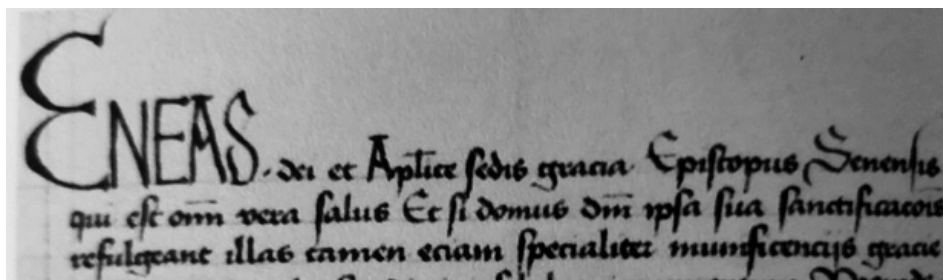 ENEAS. dei et Aplice sedis gracia Episcopus Senensis
qui est oīm vera salus Et si domus dm̄ ipsa sua sanctificacois
refulgeant illas tamen eciam specialiter munificencijs gracie